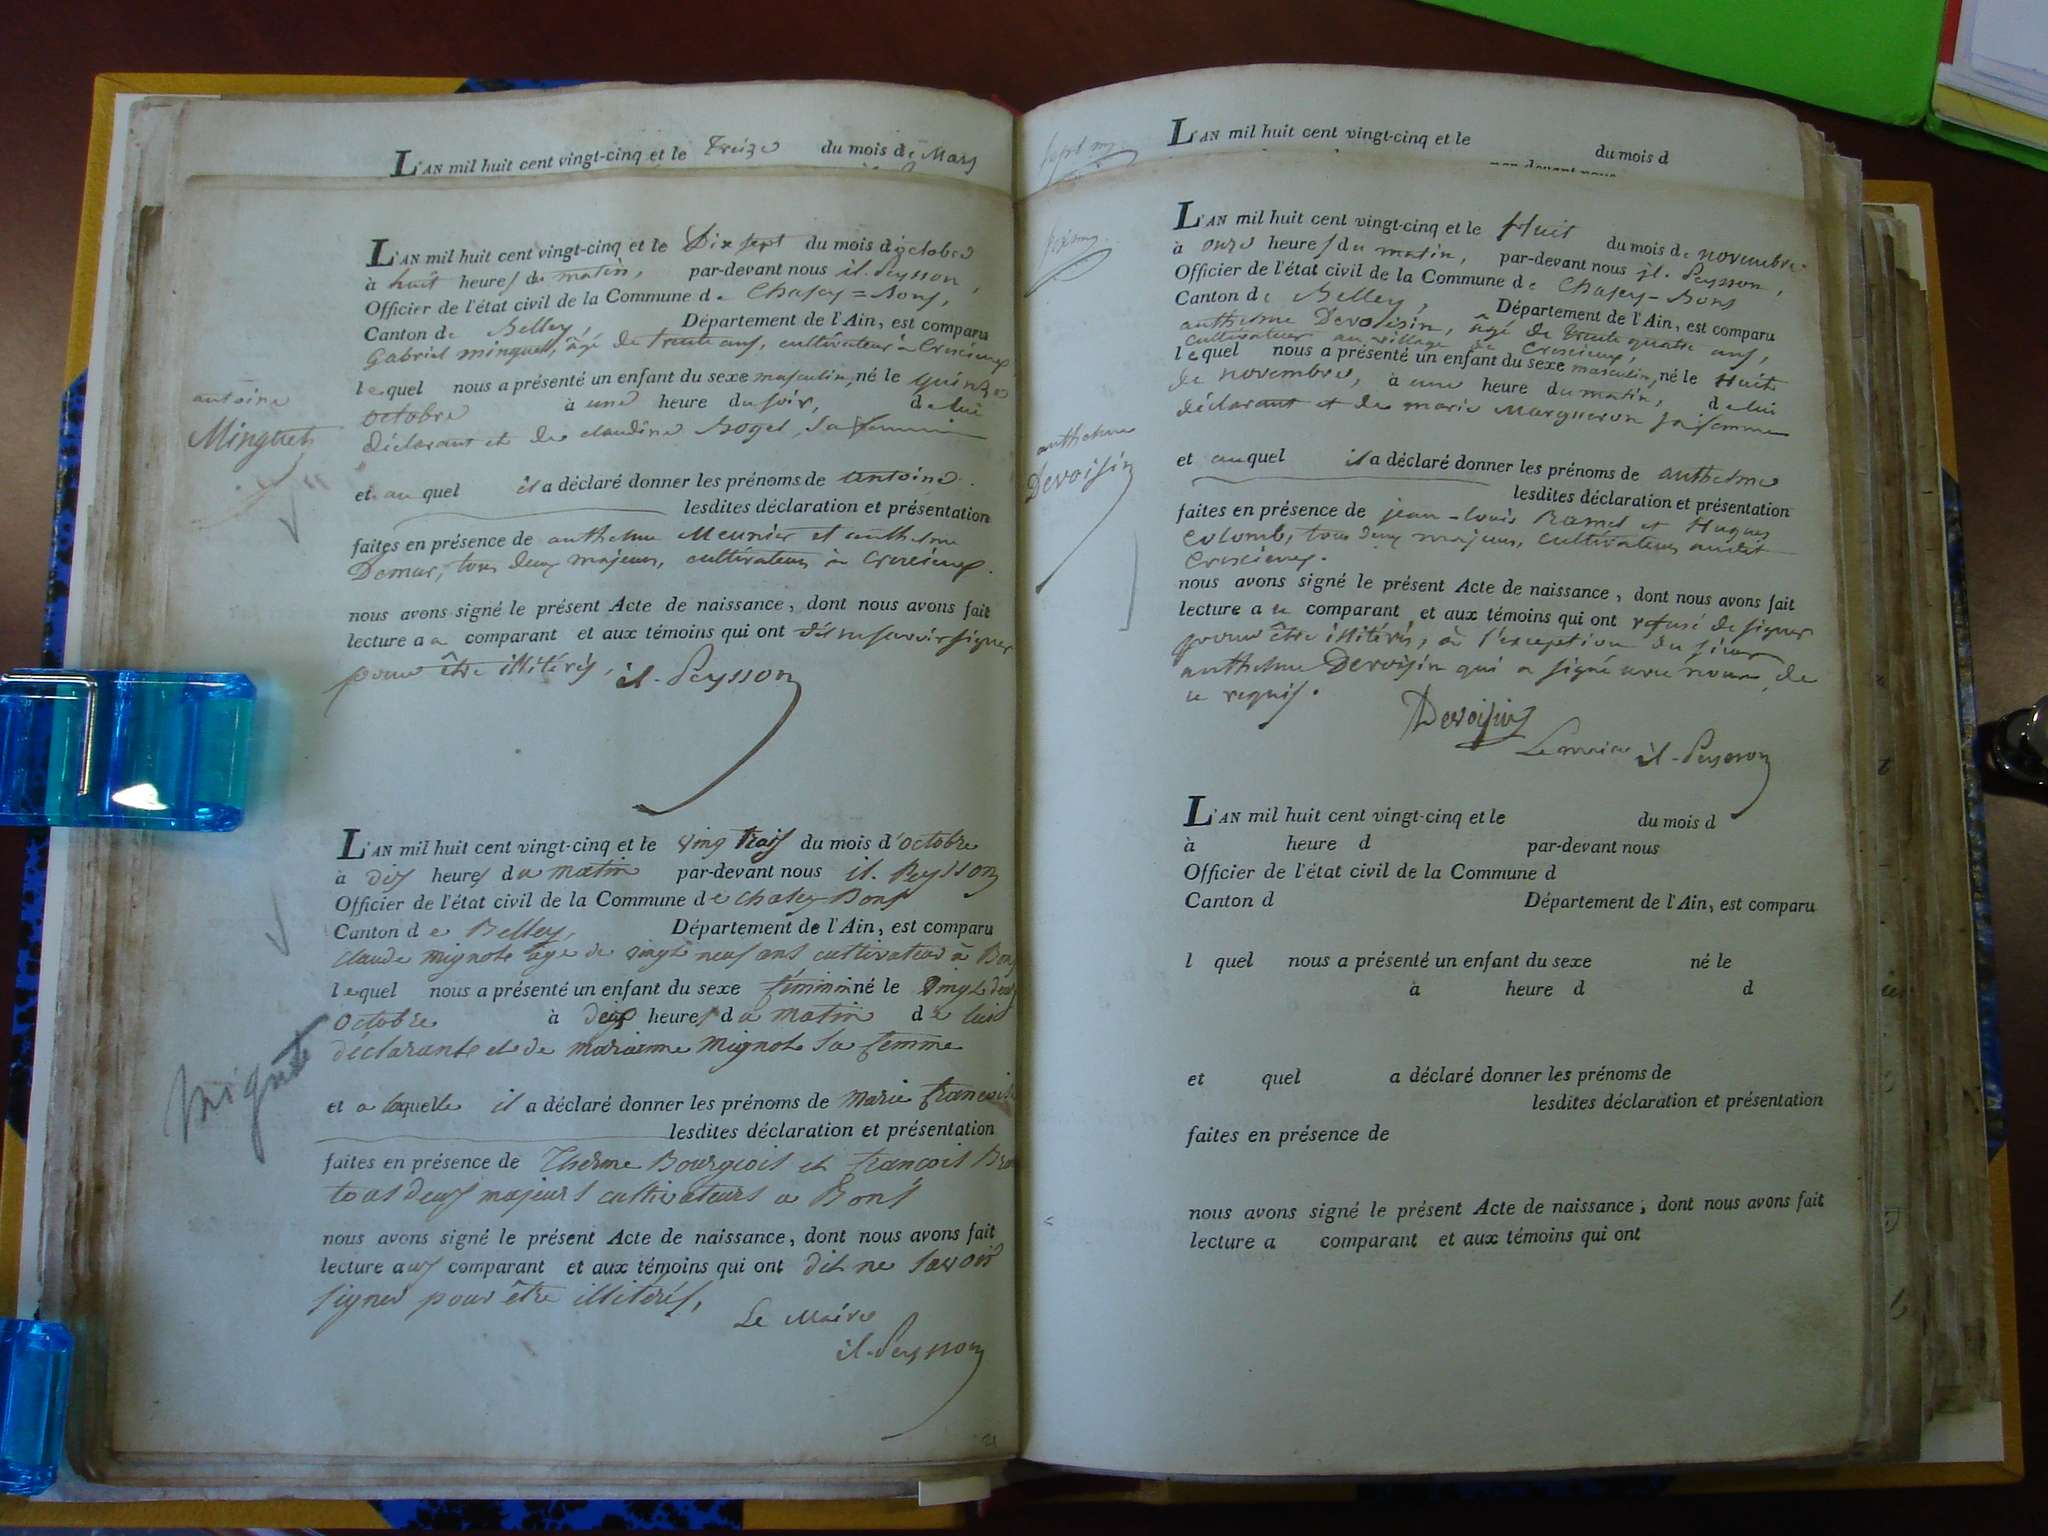 L'AN mil huit cent vingt-cinq et le Treize du mois de Mars
L'AN mil huit cent vingt-cinq et le Dix sept du mois d'octobre
à huit heures du matin, par-devant nous il. Peysson,
Officier de l'état civil de la Commune de Chasey=Bons,
Canton de Belley, Département de l'Ain, est comparu
Gabriel minguet, âgé de trente ans, cultivateur à Crescieux
lequel nous a présenté un enfant du sexe masculin, né le quinze
octobre à une heure du soir, de lui
déclarant et de claudine Boget, sa femme
antoine
Minguet
et au quel il a déclaré donner les prénoms de antoine.
lesdites déclaration et présentation
faites en présence de anthelme Meunier et anthelme
Demar, tous deux majeurs, cultivateurs à crescieux.
nous avons signé le présent Acte de naissance, dont nous avons fait
lecture au comparant et aux témoins qui ont dit ne savoir signer
pour être illitérés, il. Peysson
L'AN mil huit cent vingt-cinq et le ving trois du mois d'octobre
à dix heures du matin par-devant nous il. Peysson
Officier de l'état civil de la Commune de chasey Bons
Canton de Belley, Département de l'Ain, est comparu
claude mignot âgé de vingt neuf ans cultivateur à Bons
lequel nous a présenté un enfant du sexe féminin né le vingt deux
octobre à deux heures du matin de lui
déclarant et de marianne mignot sa femme
mignot
et a laquelle il a déclaré donner les prénoms de marie francoise
lesdites déclaration et présentation
faites en présence de Therme Bourgeois et francois
tous deux majeurs cultivateurs a Bons
nous avons signé le présent Acte de naissance, dont nous avons fait
lecture aux comparant et aux témoins qui ont dit ne savoir
signer pour être illitérés,
Le Maire
il. Peysson
L'AN mil huit cent vingt-cinq et le du mois d
L'AN mil huit cent vingt-cinq et le Huit du mois de novembre
à onze heures du matin, par-devant nous il. Peysson,
Officier de l'état civil de la Commune de Chasey-Bons
Canton de Belley, Département de l'Ain, est comparu
anthelme Devoisin, âgé de trente quatre ans,
cultivateur au village de Crescieux,
lequel nous a présenté un enfant du sexe masculin, né le Huit
de novembre, à une heure du matin, de lui
déclarant et de marie Margueron sa femme
anthelme
Devoisin
et auquel il a déclaré donner les prénoms de anthelme
lesdites déclaration et présentation
faites en présence de jean-louis Ramel et Hugues
Colomb, tous deux majeurs, cultivateurs audit
Crescieux.
nous avons signé le présent Acte de naissance, dont nous avons fait
lecture a ce comparant et aux témoins qui ont refusé de signer
pour être illitérés, à l'exception du sieur
anthelme Devoisin qui a signé avec nous, de
ce requis.
Devoisin
Le maire il. Peysson
L'AN mil huit cent vingt-cinq et le du mois d
à heure d par-devant nous
Officier de l'état civil de la Commune d
Canton d Département de l'Ain, est comparu
l quel nous a présenté un enfant du sexe né le
à heure d d
et quel a déclaré donner les prénoms de
lesdites déclaration et présentation
faites en présence de
nous avons signé le présent Acte de naissance, dont nous avons fait
lecture a comparant et aux témoins qui ont